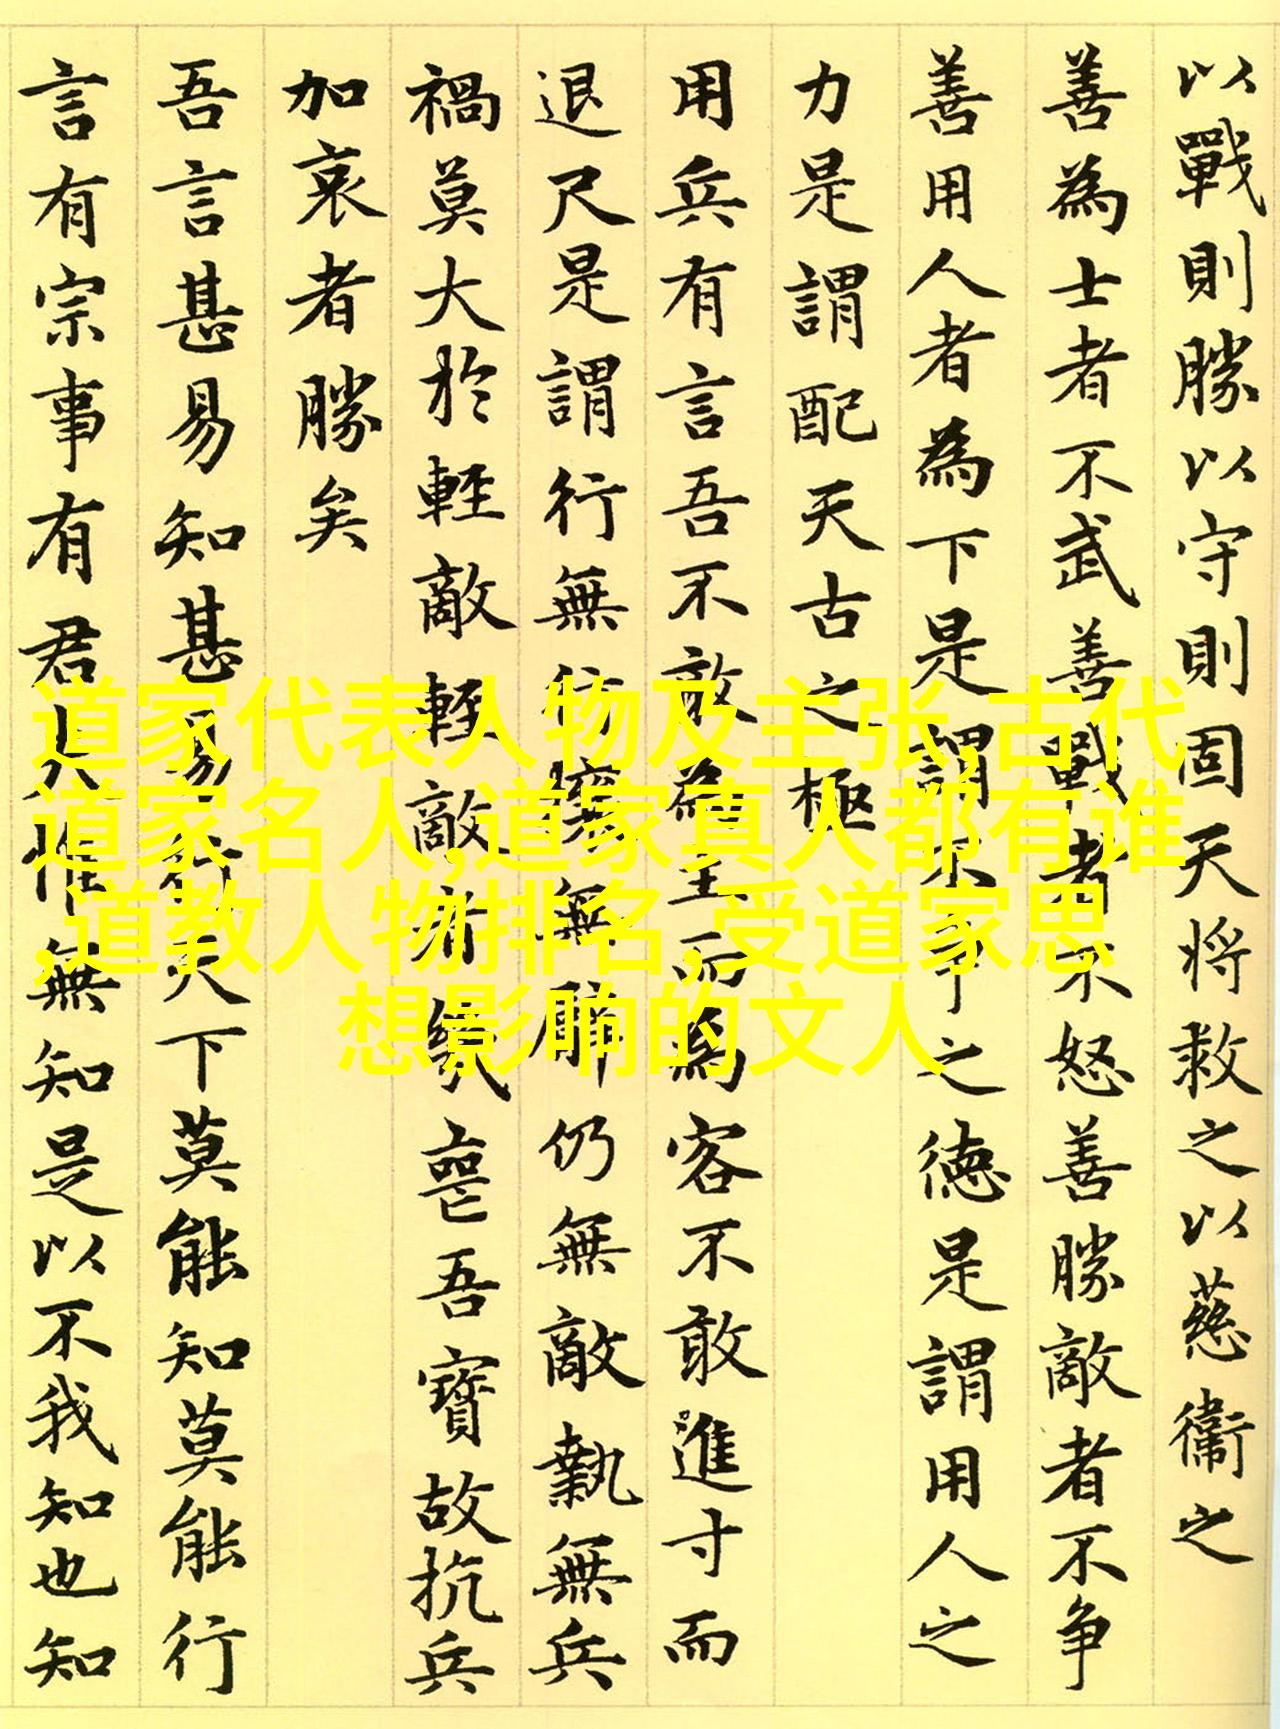 以戰則勝以守則固天將救之以慈衛之
善為士者不武善戰者不怒善勝敵者不争
善用人者為下是謂不争之德是謂用人之
力是謂配天古之極
用兵有言吾不敢為主而為客不敢進寸而
退尺是謂行無行攘無臂仍無敵執無兵
禍莫大於輕敵輕敵者幾喪吾寶故抗兵
加哀者勝矣
吾言甚易知甚易行天下莫能知莫能行
言有宗事有君夫惟無知是以不我知也知
道家代表人物及主张,古代
道家名人,道家真人都有谁
,道教人物排名,受道家思
想影响的文人